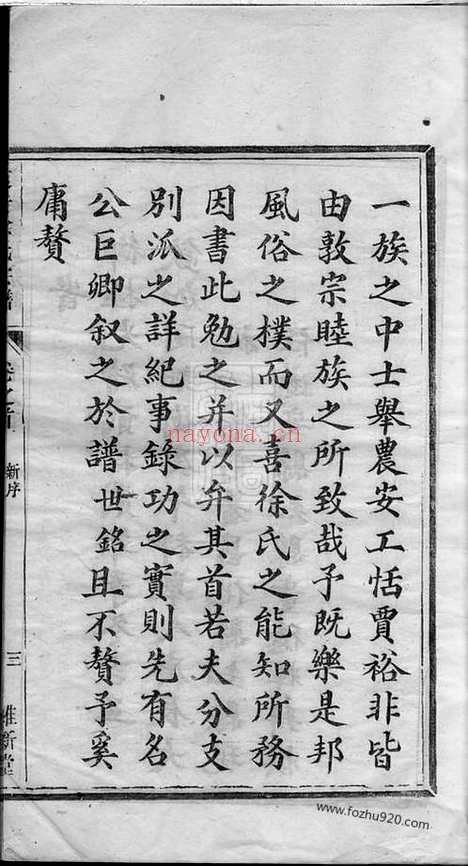 一族之中士舉農安工恬賈裕非皆
由敦宗睦族之所致哉予既樂是邦
風俗之樸而又喜徐氏之能知所務
因書此勉之并以弁其首若夫分支
別派之詳紀事錄功之實則先有名
公巨卿叙之於譜世銘且不贅予奚
庸贅
卷之首
新序
三
惟新堂
nayona.cn
www.fozhu920.com